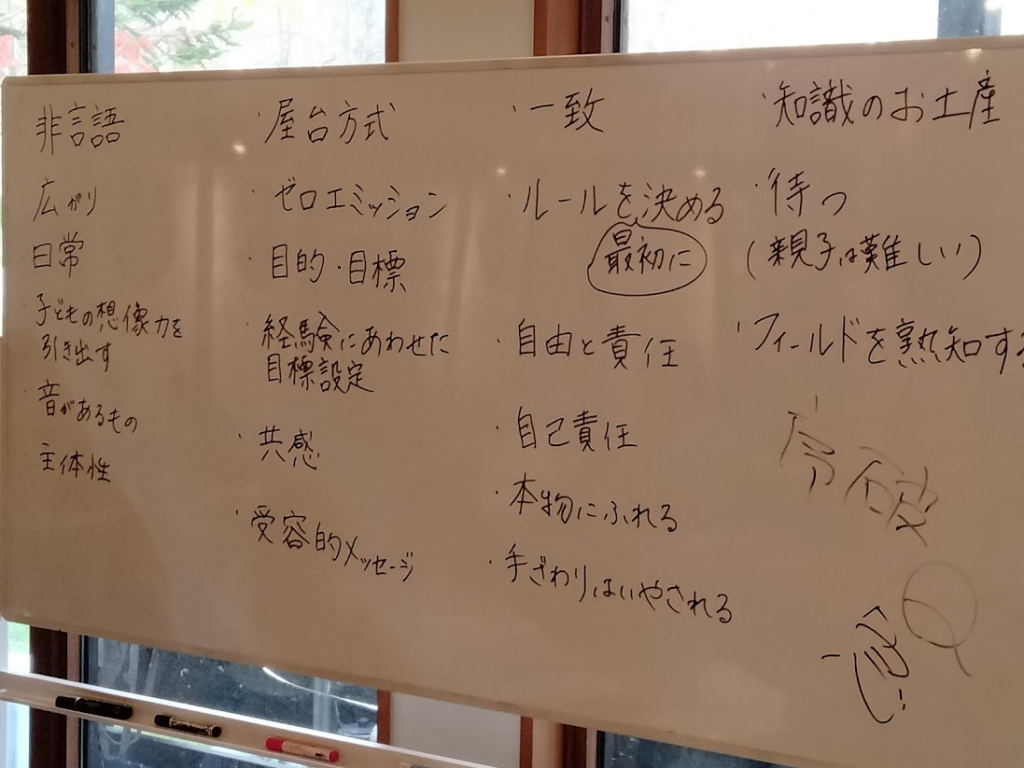 非言語
広がり
日常
・子どもの想像力を
引き出す
・音があるもの
・主体性
・屋台方式
・ゼロエミッション
・目的・目標
・経験にあわせた
目標設定
・共感
・受容的メッセージ
・一致
・ルールを決める
最初に
・自由と責任
・自己責任
・本物にふれる
・手ざわりはいやされる
・知識のお土産
・待つ
(親子は難しい)
・フィールドを熟知する